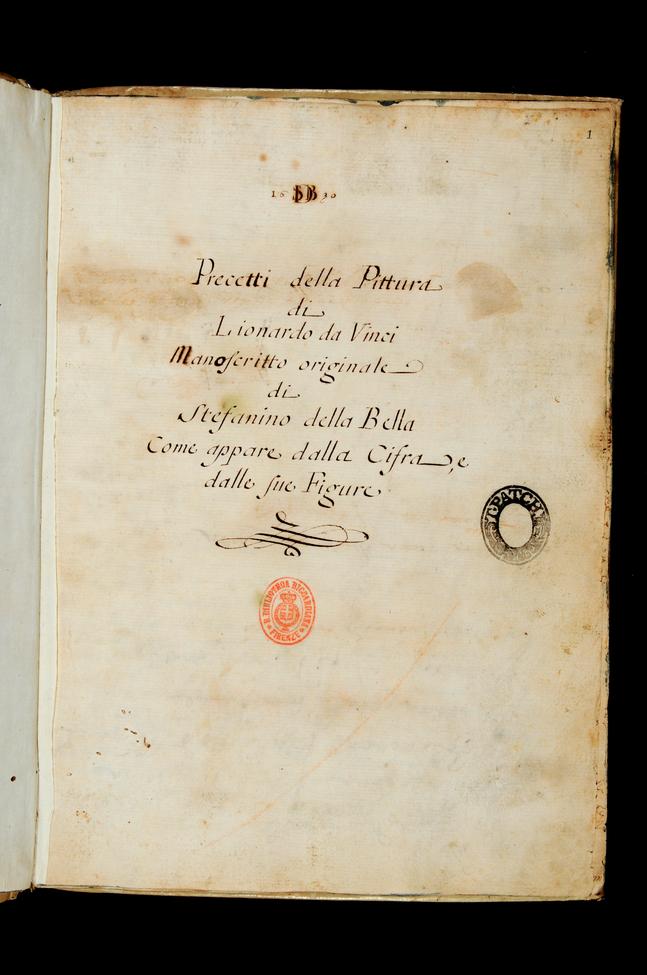 1
16 SDB 30
Precetti della Pittura
di
Lionardo da Vinci
Manoſcritto originale
di
Stefanino della Bella
Come appare dalla Cifra, e
dalle ſue Figure
T. PATCH
R. BIBLIOTECA RICCARDIANA
FIRENZE